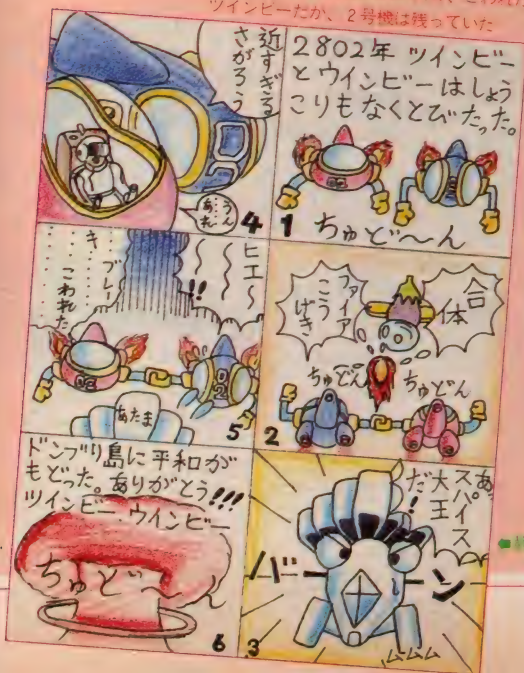 ツインビーだが、2号機は残っていた
2802年 ツインビー
とウインビーはしょう
こりもなくとびたった。
02
1
ちゅど〜〜ん
合体
ファイア
こう
げき
ちゅどん
ちゅどん
2
あっ
スパイス
大王
だ!
バーーン
ムムム
3
近すぎる
さがろう
02
あれ
4
ヒエ〜
!!
ブレー
キ
こわれた
02
02
あたま
5
ドンブリ島に平和が
もどった。ありがとう!!!
ツインビー.ウインビー
ちゅど〜〜ん
6